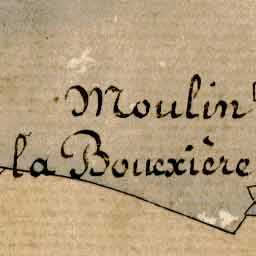 Moulin
la Bouexière